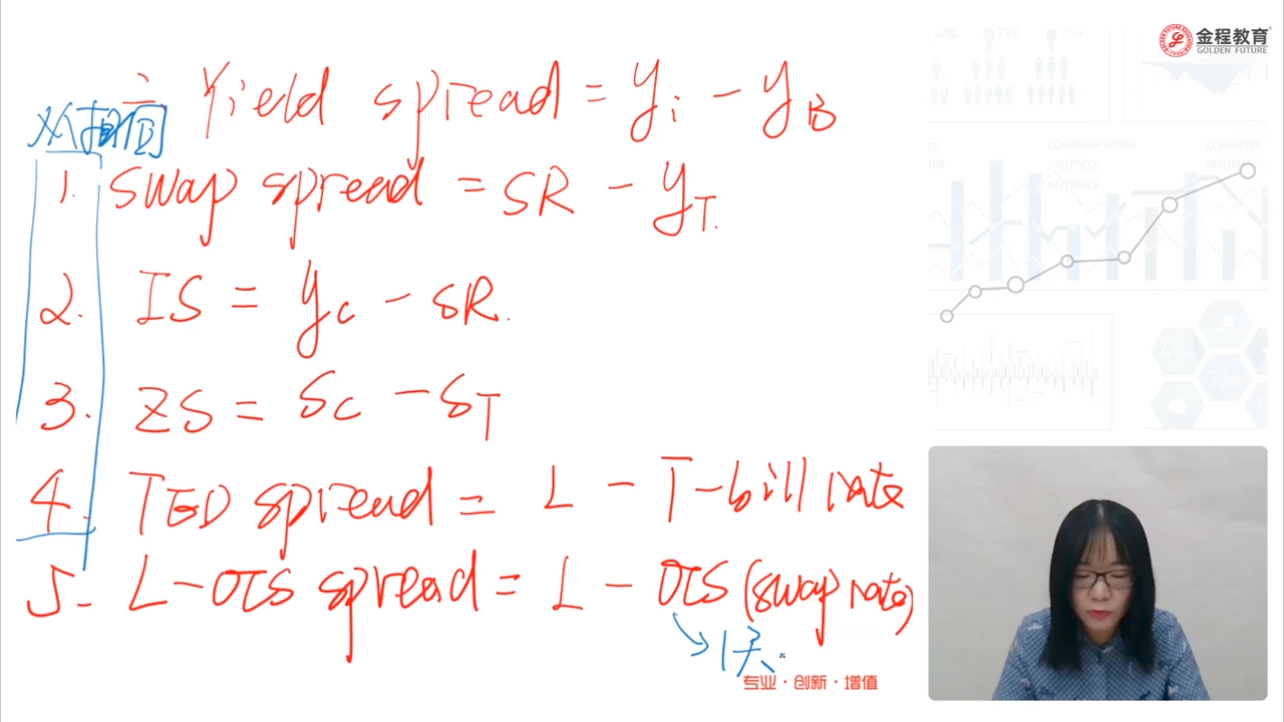 金程教育
GOLDEN FUTURE
二. Yield spread = yi - yB
1. swap spread = SR - yT.
2. IS = yc - SR.
3. ZS = Sc - ST
4. TED spread = L - T-bill rate
5. L-OIS spread = L - OIS (swap rate)
1天
专业·创新·增值